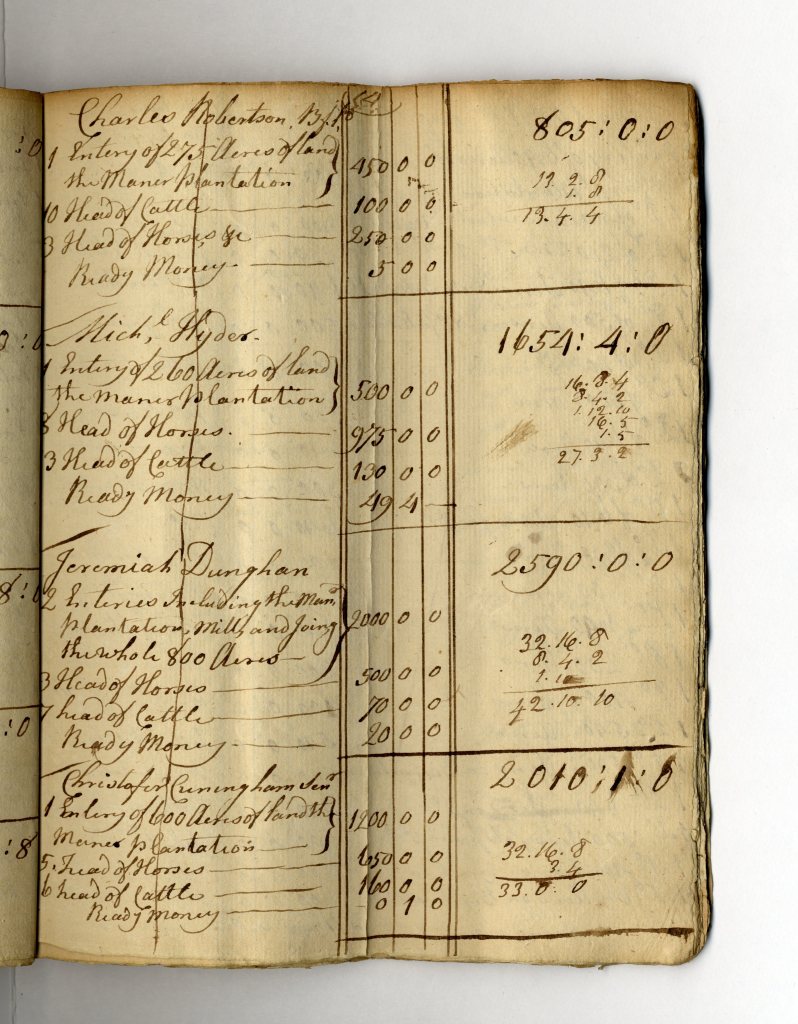 Charles Robertson 805:0:0
1 Entery of 275 Acres of land
the Maner Plantation 450 0 0
10 Head of Cattle 100 0 0
3 Head of Horses &c 250 0 0
Ready Money 5 0 0
13.2.8
1.8
13.4.4
Mich,l Hyder. 1654:4:0
1 Entery of 260 Acres of land
the maner plantation 500 0 0
8 Head of Horses. 975 0 0
3 Head of Cattle 130 0 0
Ready Money 49 4
16.8.4
8.4.2
1.12.10
16.5
1.5
27.3.2
Jeremiah Dunghan 2590:0:0
2 Enteries Including the Manr
plantation, Mill, and Joing 2000 0 0
the whole 800 Acres
3 Head of Horses 500 0 0
7 head of Cattle 70 0 0
Ready Money 20 0 0
32.16.8
8.4.2
1.10
42.10.10
Christofer Cuningham Senr 2010:1:0
1 Entery of 600 Acres of land the
Maner plantation 1200 0 0
5 head of Horses 650 0 0
6 head of Cattle 160 0 0
Ready Money 0 1 0
32.16.8
3.4
33.0.0
:0
:0
8:0
:0
:8